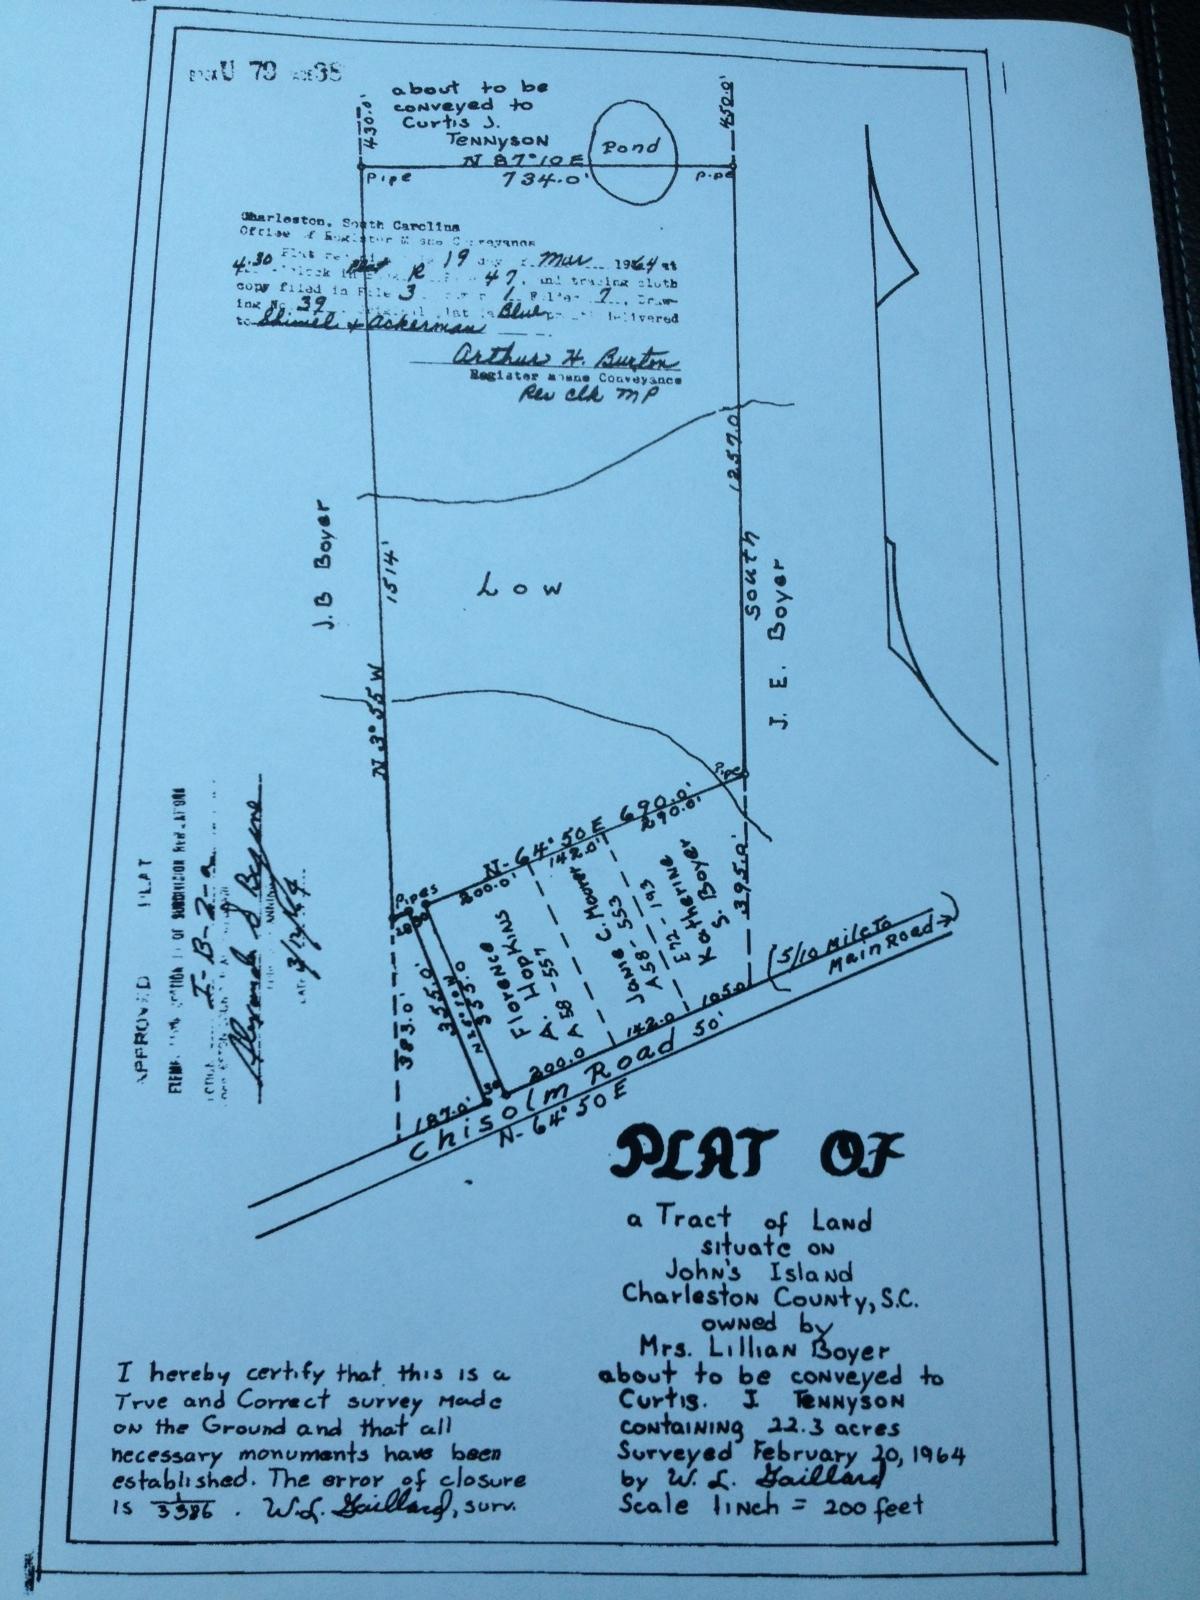 U 79
about to be
conveyed to
Curtis J.
Tennyson
430.0'
450.0'
Pond
N 87°10 E
734.0'
Pipe
Pipe
Charleston, South Carolina
Office of Register Mesne Conveyance
4.30 Plat 19 Mar 1964 at
R 47, and tracing cloth
copy filed in File 3 1 Folder 7, Draw-
ing No. 39 Blue delivered
to Shimel & Ackerman
Arthur H. Burton
Register Mesne Conveyance
Rev clk MP
J.B Boyer
1514'
N 3°55 W
Low
1257.0
South
J. E. Boyer
Pipe
N-64°50 E 690.0'
200.0'
142.0'
290.0'
Pipes
383.0'
355.0'
355.0
395.0'
Florence
A. Hopkins
A 58-557
Jane C.
A58-553
E72-193
Katherine
S. Boyer
5/10 Mile to
Main Road
187.0'
30
200.0
142.0
105.0
Chisolm Road 50'
N-64°50 E
APPROVED PLAT
OF SUBDIVISION REGULATIONS
I-B-2-a
PLAT OF
a Tract of Land
situate on
John's Island
Charleston County, S.C.
owned by
Mrs. Lillian Boyer
about to be conveyed to
Curtis. J Tennyson
containing 22.3 acres
Surveyed February 20, 1964
by W. L. Gaillard
Scale 1inch = 200 feet
I hereby certify that this is a
True and Correct survey made
on the Ground and that all
necessary monuments have been
established. The error of closure
is 1/3386 . W.L. Gaillard, surv.